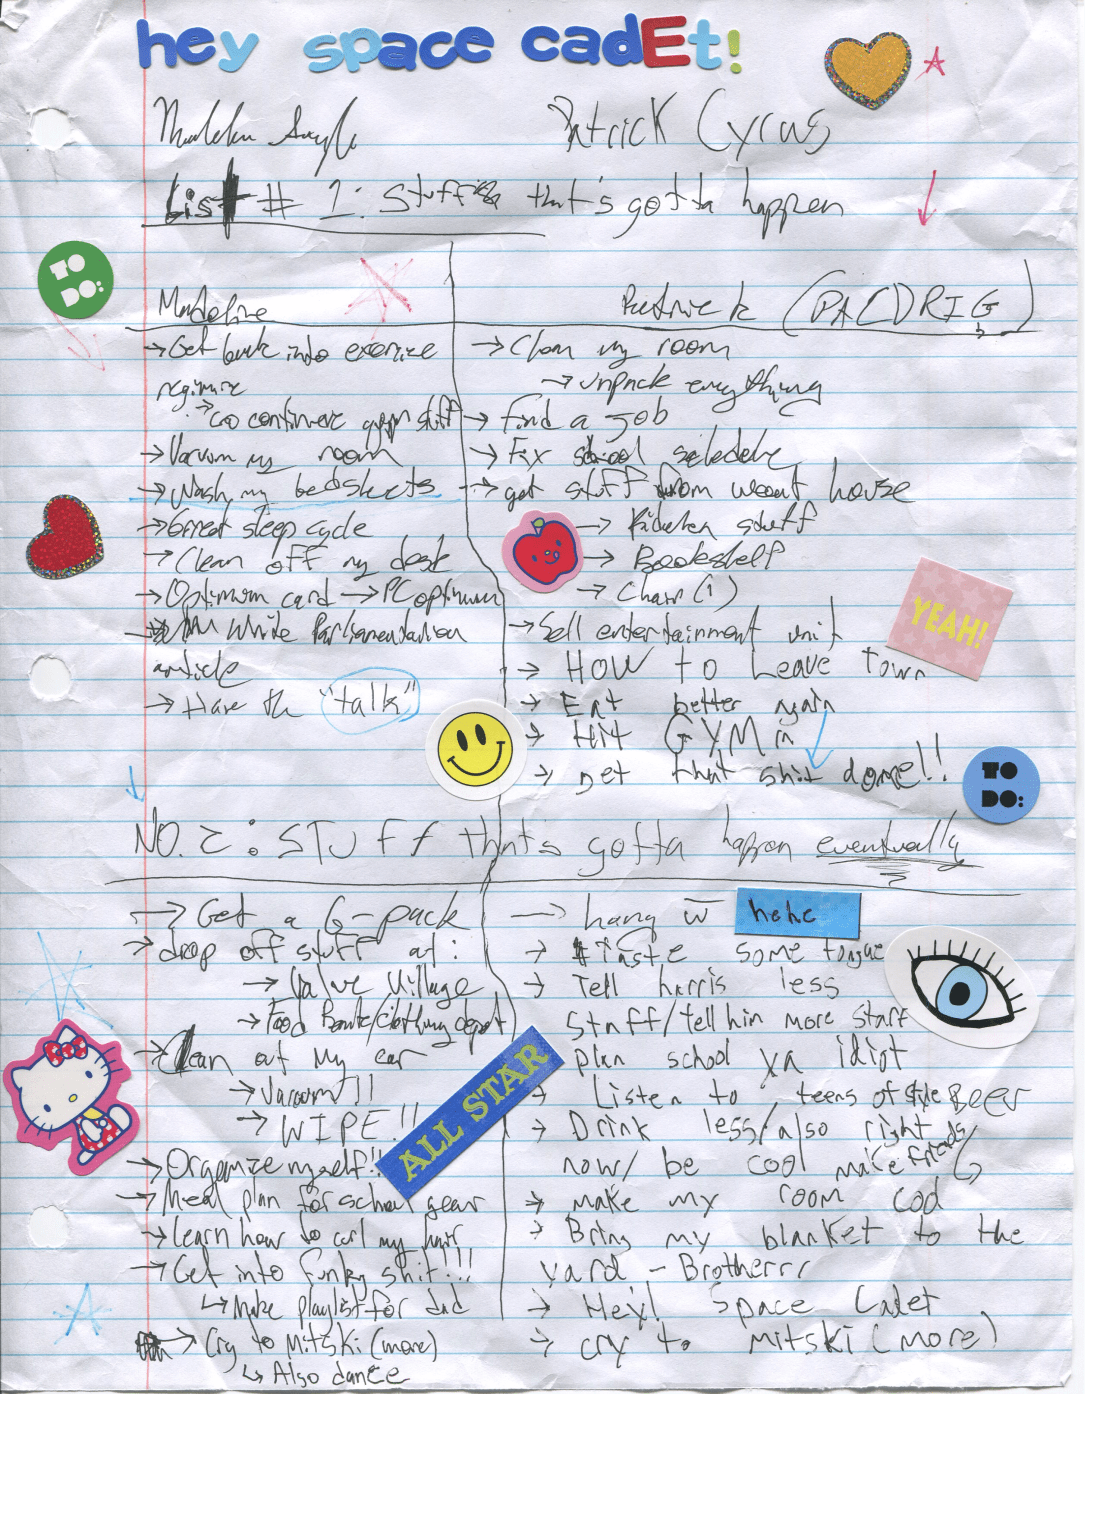 hey space cadEt!
Patrick Cyrus
List # 1: Stuff that's gotta happen
TO DO:
Madeline
Patrick (PACDRIG)
→ Get back into exercise
regimine
→ continue gym stuff
→ Vacuum my room
→ Wash my bedsheets
→ Correct sleep cycle
→ Clean off my desk
→ Optimum card → PC optimum
→ Write Parliamentarian
article
→ Have the "talk"
→ Clean my room
→ unpack everything
→ find a job
→ Fix school
→ get stuff from house
→ Kitchen stuff
→ Bookshelf
→ Chair (1)
→ Sell entertainment unit
→ HOW to Leave Town
→ Eat better again
→ Hit GYM
→ get that shit done!!
YEAH!
TO DO:
NO. 2: STUFF that's gotta happen eventually
→ Get a G-pack
→ drop off stuff at:
→ Value Village
→ Food Bank/clothing depot
→ Clean out my car
→ Vacuum!!
→ WIPE!!
→ Organize myself!!
→ Meal plan for school year
→ Learn how to curl my hair
→ Get into funky shit!!!
↳ Make playlist for dad
→ Cry to Mitski (more)
↳ Also dance
ALL STAR
→ hang w hehe
→ Taste some tongue
→ Tell harris less
stuff/tell him more stuff
→ plan school ya idiot
→ Listen to teens of style BEER
→ Drink less/also right
now/ be cool make friends/
→ make my room cool
→ Bring my blanket to the
yard - Brotherrr
→ Hey! Space Cadet
→ cry to mitski (more)